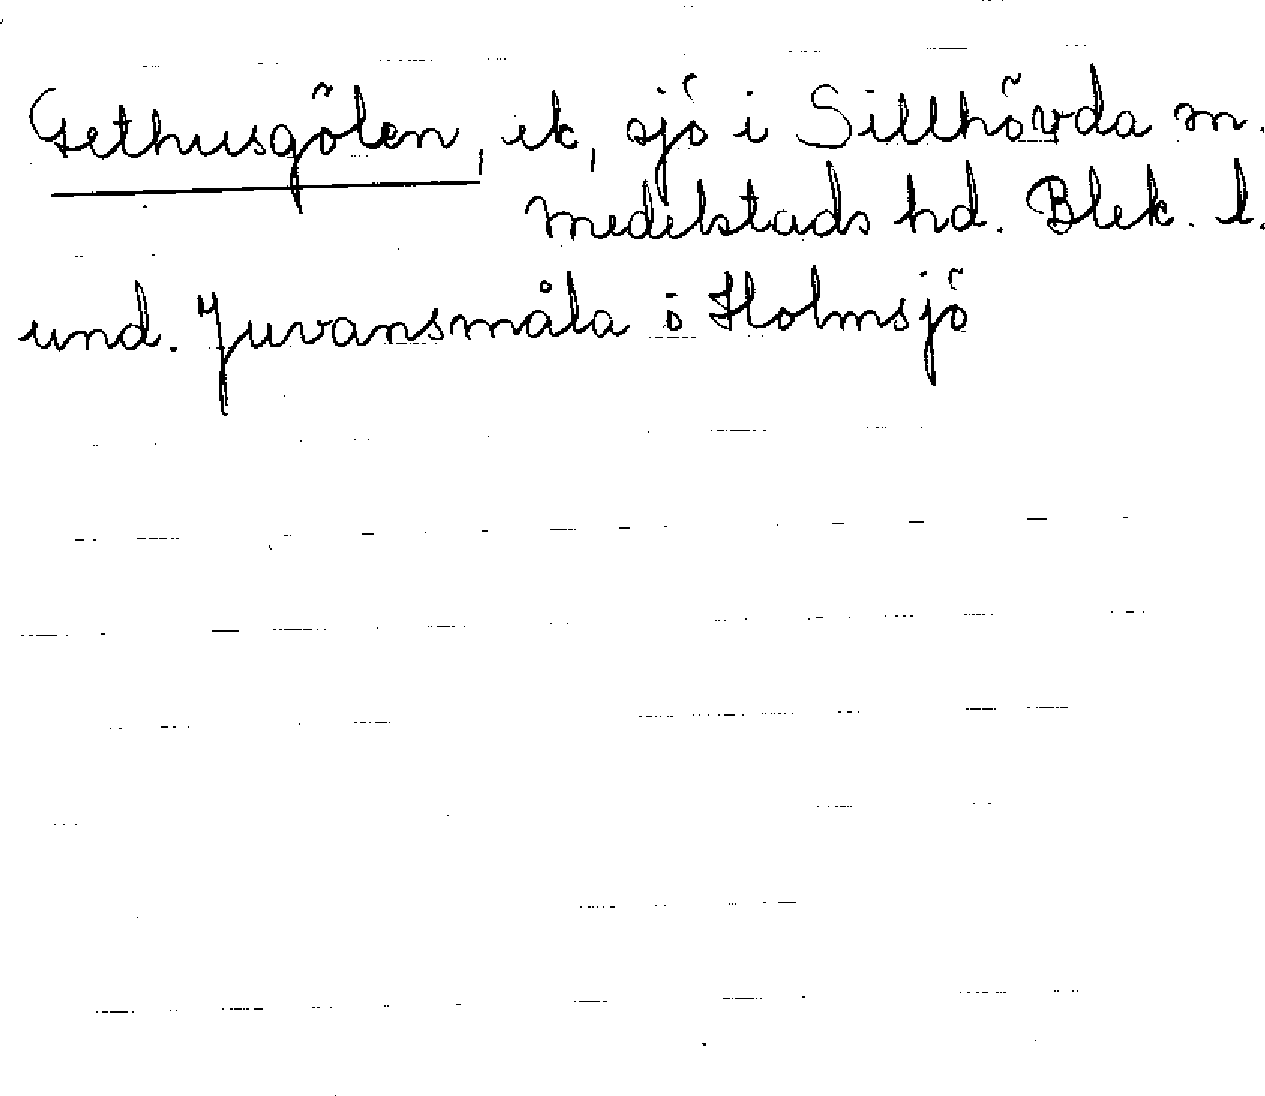 Gethusgölen, ek, sjö i Sillhövda m.
Medelstads hd. Blek. l.
und. Juvansmåla ö Holmsjö